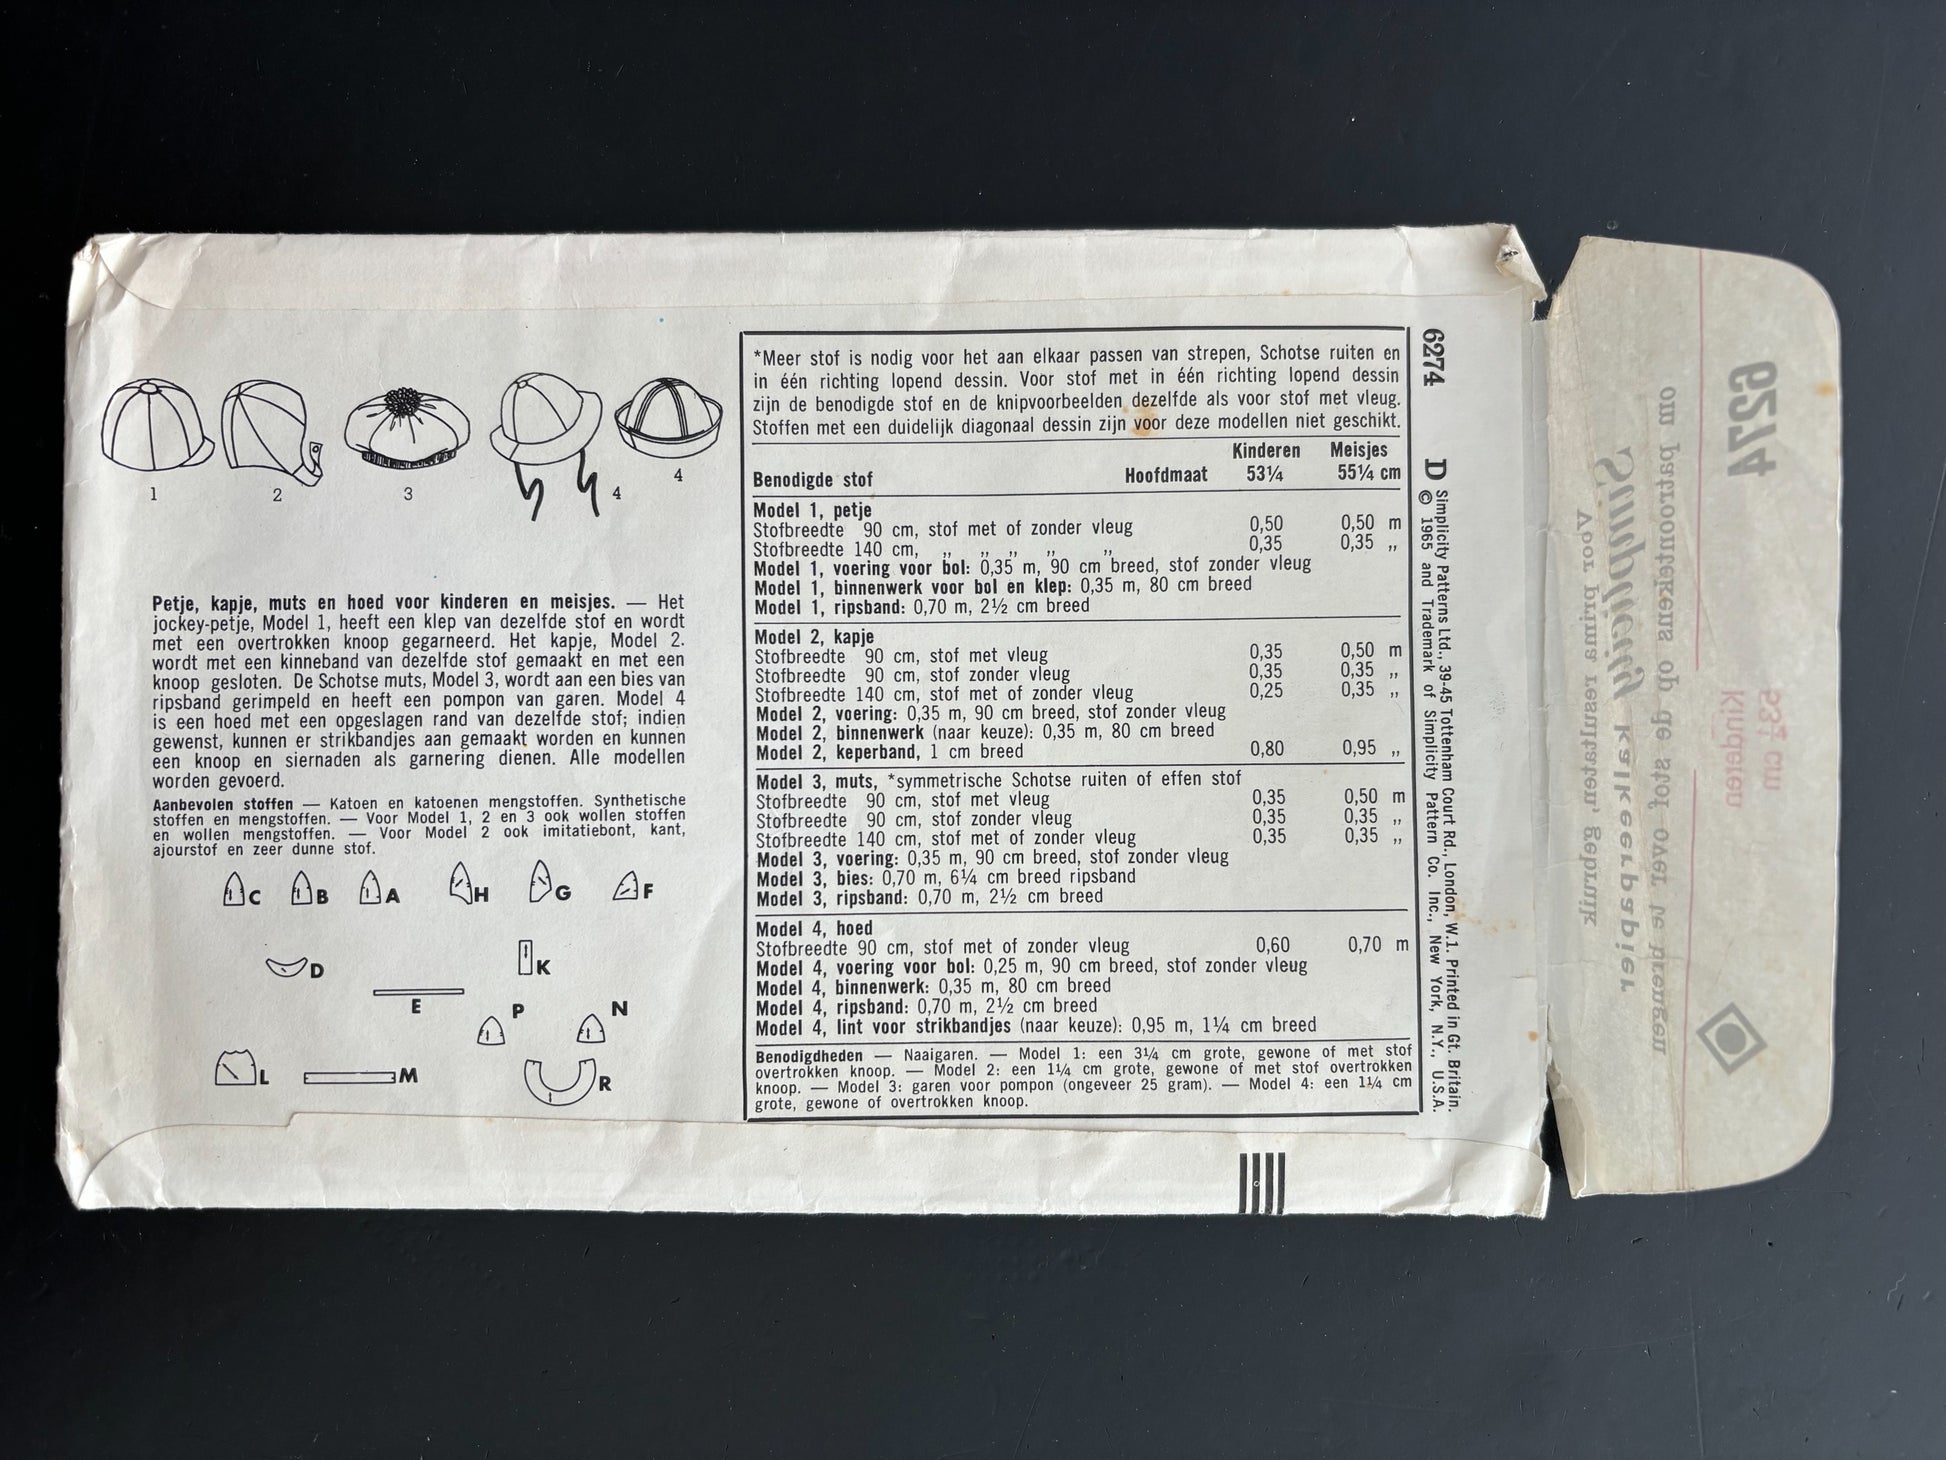 1
2
3
4
4
Petje, kapje, muts en hoed voor kinderen en meisjes. — Het
jockey-petje, Model 1, heeft een klep van dezelfde stof en wordt
met een overtrokken knoop gegarneerd. Het kapje, Model 2.
wordt met een kinneband van dezelfde stof gemaakt en met een
knoop gesloten. De Schotse muts, Model 3, wordt aan een bies van
ripsband gerimpeld en heeft een pompon van garen. Model 4
is een hoed met een opgeslagen rand van dezelfde stof; indien
gewenst, kunnen er strikbandjes aan gemaakt worden en kunnen
een knoop en siernaden als garnering dienen. Alle modellen
worden gevoerd.
Aanbevolen stoffen — Katoen en katoenen mengstoffen. Synthetische
stoffen en mengstoffen. — Voor Model 1, 2 en 3 ook wollen stoffen
en wollen mengstoffen. — Voor Model 2 ook imitatiebont, kant,
ajourstof en zeer dunne stof.
C B A H G F
D K
E
P N
L M R
*Meer stof is nodig voor het aan elkaar passen van strepen, Schotse ruiten en
in één richting lopend dessin. Voor stof met in één richting lopend dessin
zijn de benodigde stof en de knipvoorbeelden dezelfde als voor stof met vleug.
Stoffen met een duidelijk diagonaal dessin zijn voor deze modellen niet geschikt.
Kinderen Meisjes
Benodigde stof Hoofdmaat 53¼ 55¼ cm
Model 1, petje
Stofbreedte 90 cm, stof met of zonder vleug 0,50 0,50 m
Stofbreedte 140 cm, ,, ,, ,, ,, ,, 0,35 0,35 ,,
Model 1, voering voor bol: 0,35 m, 90 cm breed, stof zonder vleug
Model 1, binnenwerk voor bol en klep: 0,35 m, 80 cm breed
Model 1, ripsband: 0,70 m, 2½ cm breed
Model 2, kapje
Stofbreedte 90 cm, stof met vleug 0,35 0,50 m
Stofbreedte 90 cm, stof zonder vleug 0,35 0,35 ,,
Stofbreedte 140 cm, stof met of zonder vleug 0,25 0,35 ,,
Model 2, voering: 0,35 m, 90 cm breed, stof zonder vleug
Model 2, binnenwerk (naar keuze): 0,35 m, 80 cm breed
Model 2, keperband, 1 cm breed 0,80 0,95 ,,
Model 3, muts, *symmetrische Schotse ruiten of effen stof
Stofbreedte 90 cm, stof met vleug 0,35 0,50 m
Stofbreedte 90 cm, stof zonder vleug 0,35 0,35 ,,
Stofbreedte 140 cm, stof met of zonder vleug 0,35 0,35 ,,
Model 3, voering: 0,35 m, 90 cm breed, stof zonder vleug
Model 3, bies: 0,70 m, 6¼ cm breed ripsband
Model 3, ripsband: 0,70 m, 2½ cm breed
Model 4, hoed
Stofbreedte 90 cm, stof met of zonder vleug 0,60 0,70 m
Model 4, voering voor bol: 0,25 m, 90 cm breed, stof zonder vleug
Model 4, binnenwerk: 0,35 m, 80 cm breed
Model 4, ripsband: 0,70 m, 2½ cm breed
Model 4, lint voor strikbandjes (naar keuze): 0,95 m, 1¼ cm breed
Benodigdheden — Naaigaren. — Model 1: een 3¼ cm grote, gewone of met stof
overtrokken knoop. — Model 2: een 1¼ cm grote, gewone of met stof overtrokken
knoop. — Model 3: garen voor pompon (ongeveer 25 gram). — Model 4: een 1¼ cm
grote, gewone of overtrokken knoop.
6274 D Simplicity Patterns Ltd., 39-45 Tottenham Court Rd., London, W.1. Printed in Gt. Britain.
© 1965 and Trademark of Simplicity Pattern Co. Inc., New York, N.Y., U.S.A.
6274
53¼ cm
Kinderen
om patroontekens op de stof over te brengen
Simplicity kalkeerpapier
Voor prima resultaten, gebruik